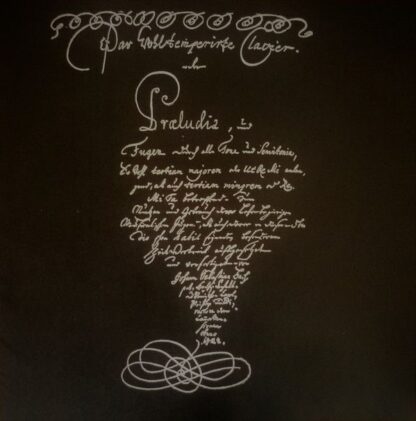 Das Wohltemperirte Clavier.
oder
Præludia, und
Fugen durch alle Tone und Semitonia,
So wohl tertiam majorem oder Ut Re Mi anlan-
gend, als auch tertiam minorem oder Re
Mi Fa betreffend. Zum
Nutzen und Gebrauch der Lehrbegierigen
Musicalischen Jugend, als auch derer in diesem stu-
dio schon habil seyenden besonderem
Zeitvertreib auffgesetzet
und verfertiget von
Johann Sebastian Bach
p. t. Hochfürstlich
1722.